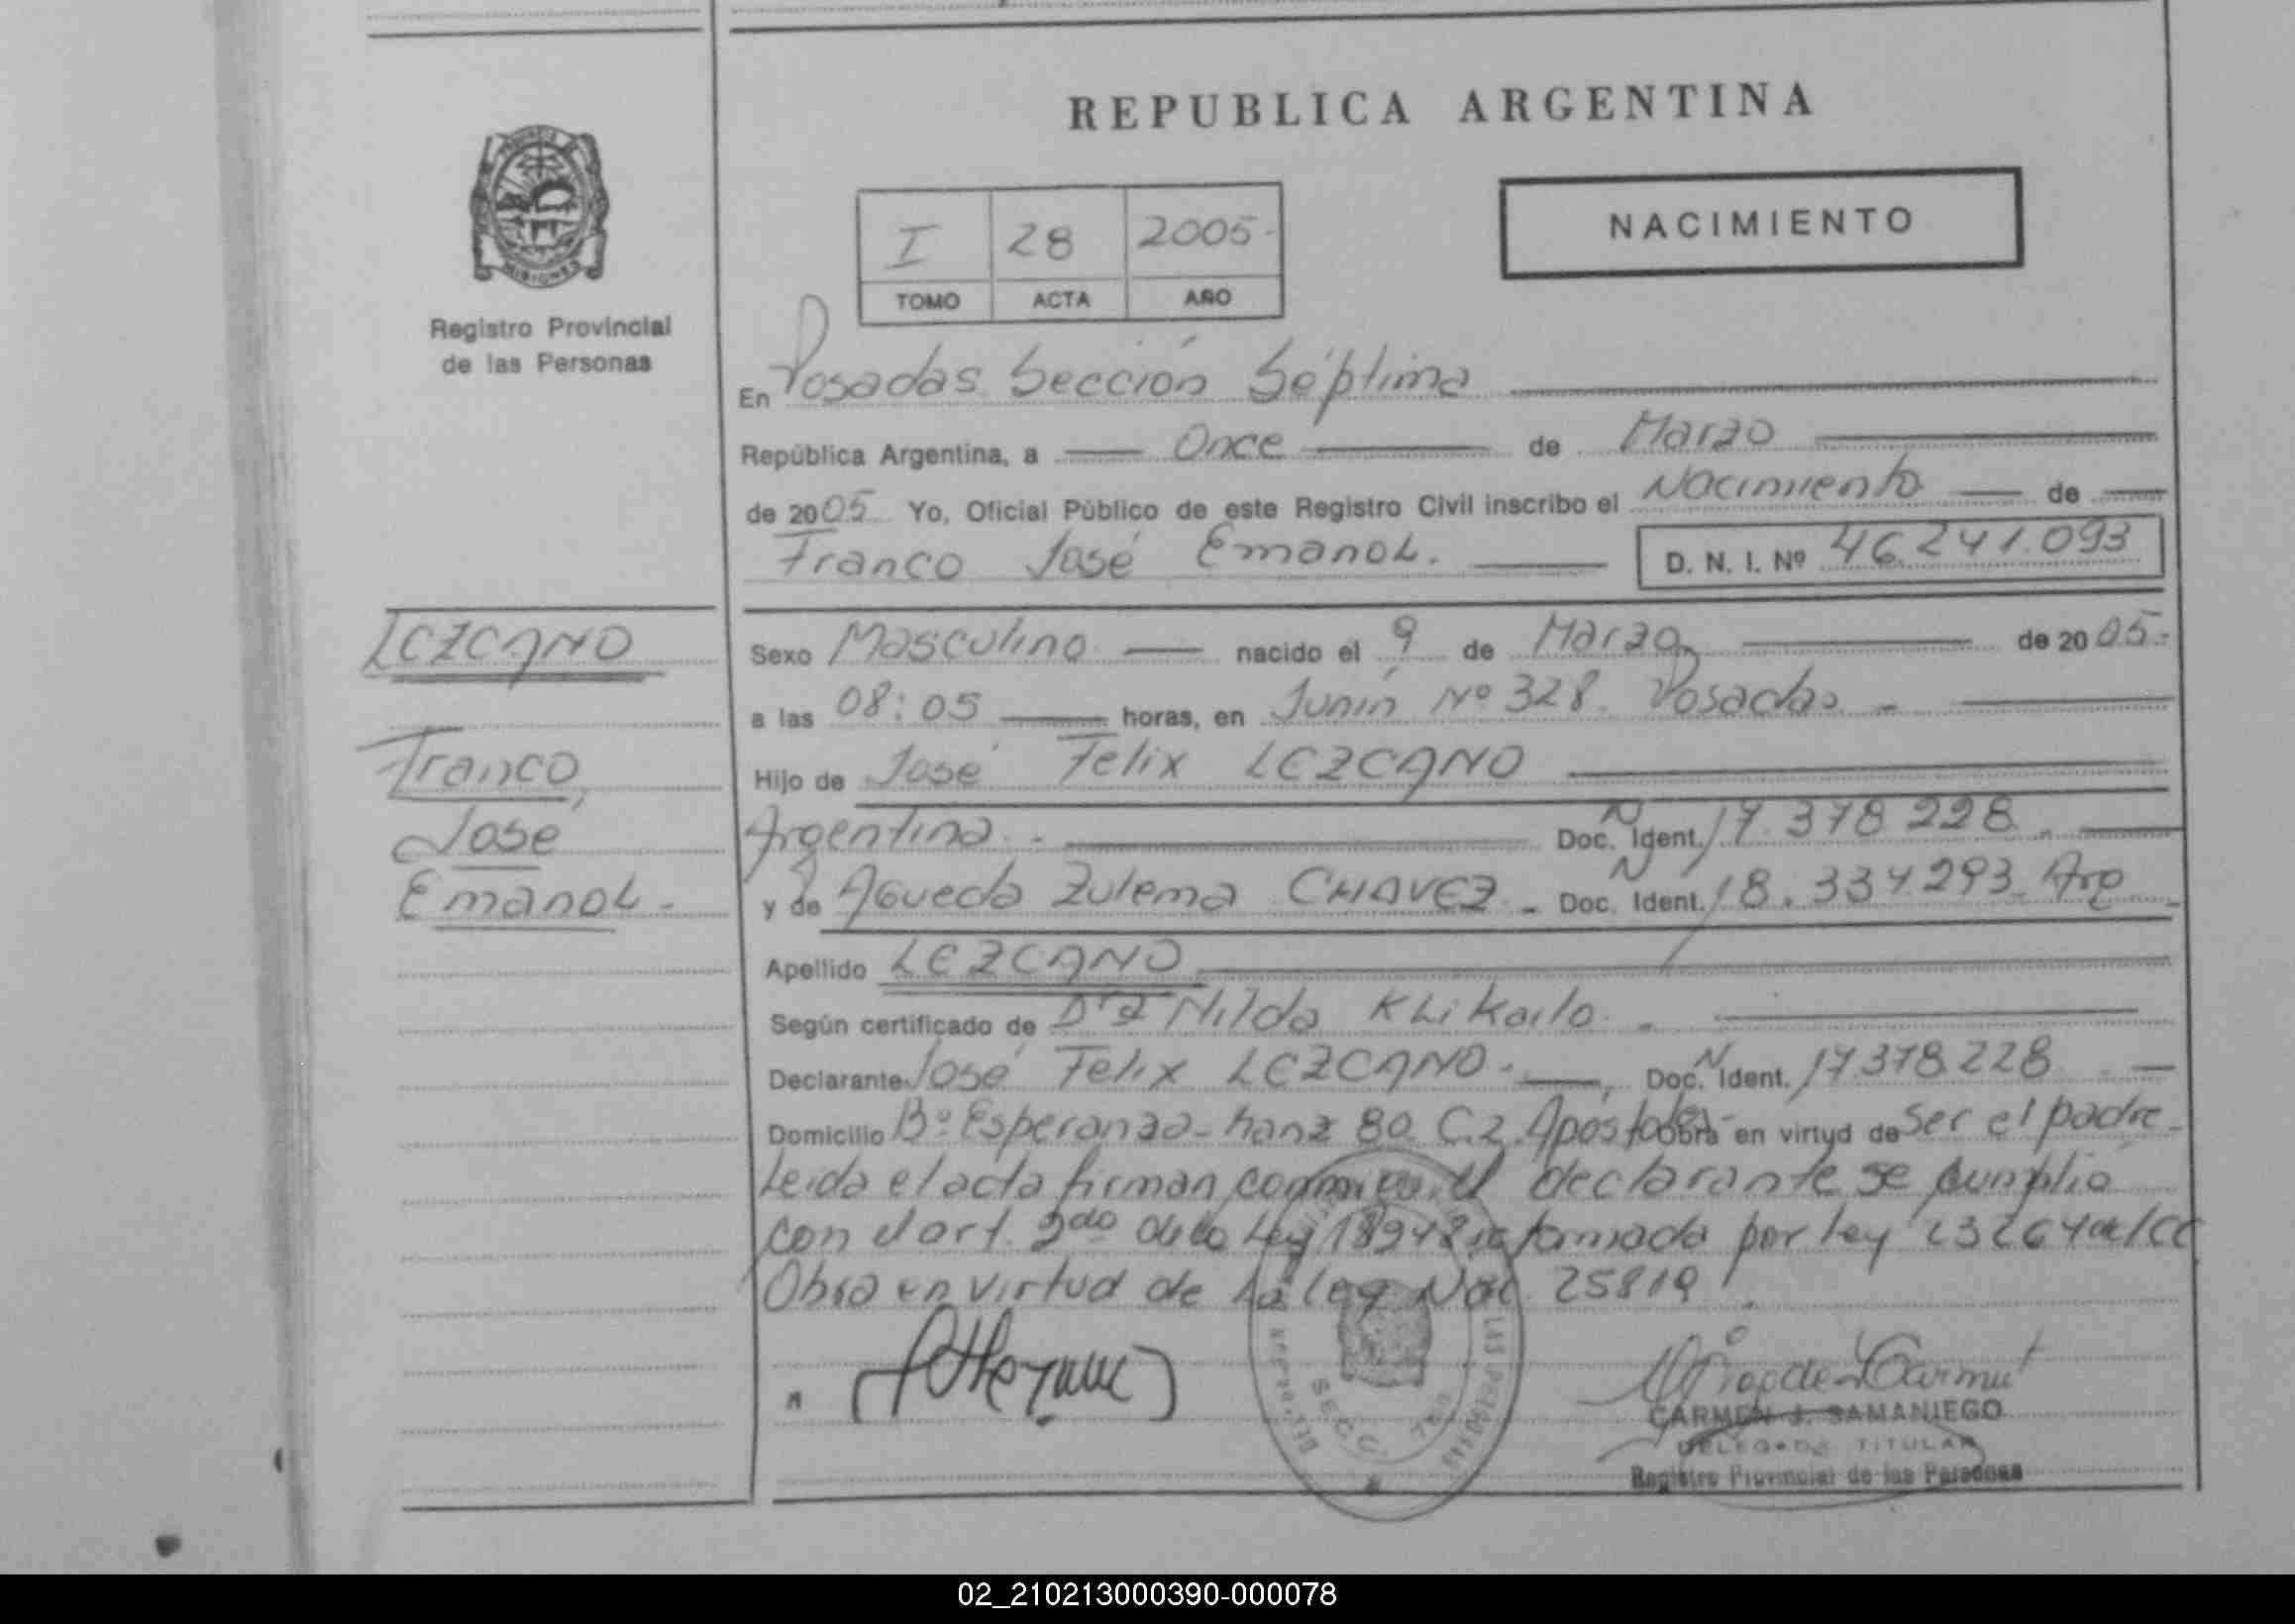 REPUBLICA ARGENTINA
NACIMIENTO
I 28 2005-
TOMO ACTA AÑO
MISIONES
Registro Provincial
de las Personas
En Posadas Sección Séptima
República Argentina, a Once de Marzo
de 2005 Yo, Oficial Público de este Registro Civil inscribo el Nacimiento de
Franco José Emanol. D. N. I. Nº 46.241.093
LEZCANO
Franco,
José
Emanol.-
Sexo Masculino nacido el 9 de Marzo de 2005.-
a las 08:05 horas, en Junín Nº 328. Posadas -
Hijo de José Felix LEZCANO
Argentina.- Doc. N Ident. 17.378.228.
y de Agueda Zulema CHAVEZ - Doc. N Ident. 18.334.293. Arg
Apellido LEZCANO
Según certificado de Dra Nilda Khikailo.
Declarante José Felix LEZCANO.- Doc. N Ident. 17.378.228
Domicilio Bº Esperanza- Manz 80 C.2. Apostoles- Obra en virtud de Ser el padre-
Leida el acta firman conmigo el declarante se cumplio
con el art. 2do de la Ley 18948 reformada por ley 23264 del CC
Obra en virtud de La ley Nac. 25819.
SECC. 7MA
CARMEN J. SAMANIEGO
DELEGADA TITULAR
Registro Provincial de las Personas
02_210213000390-000078